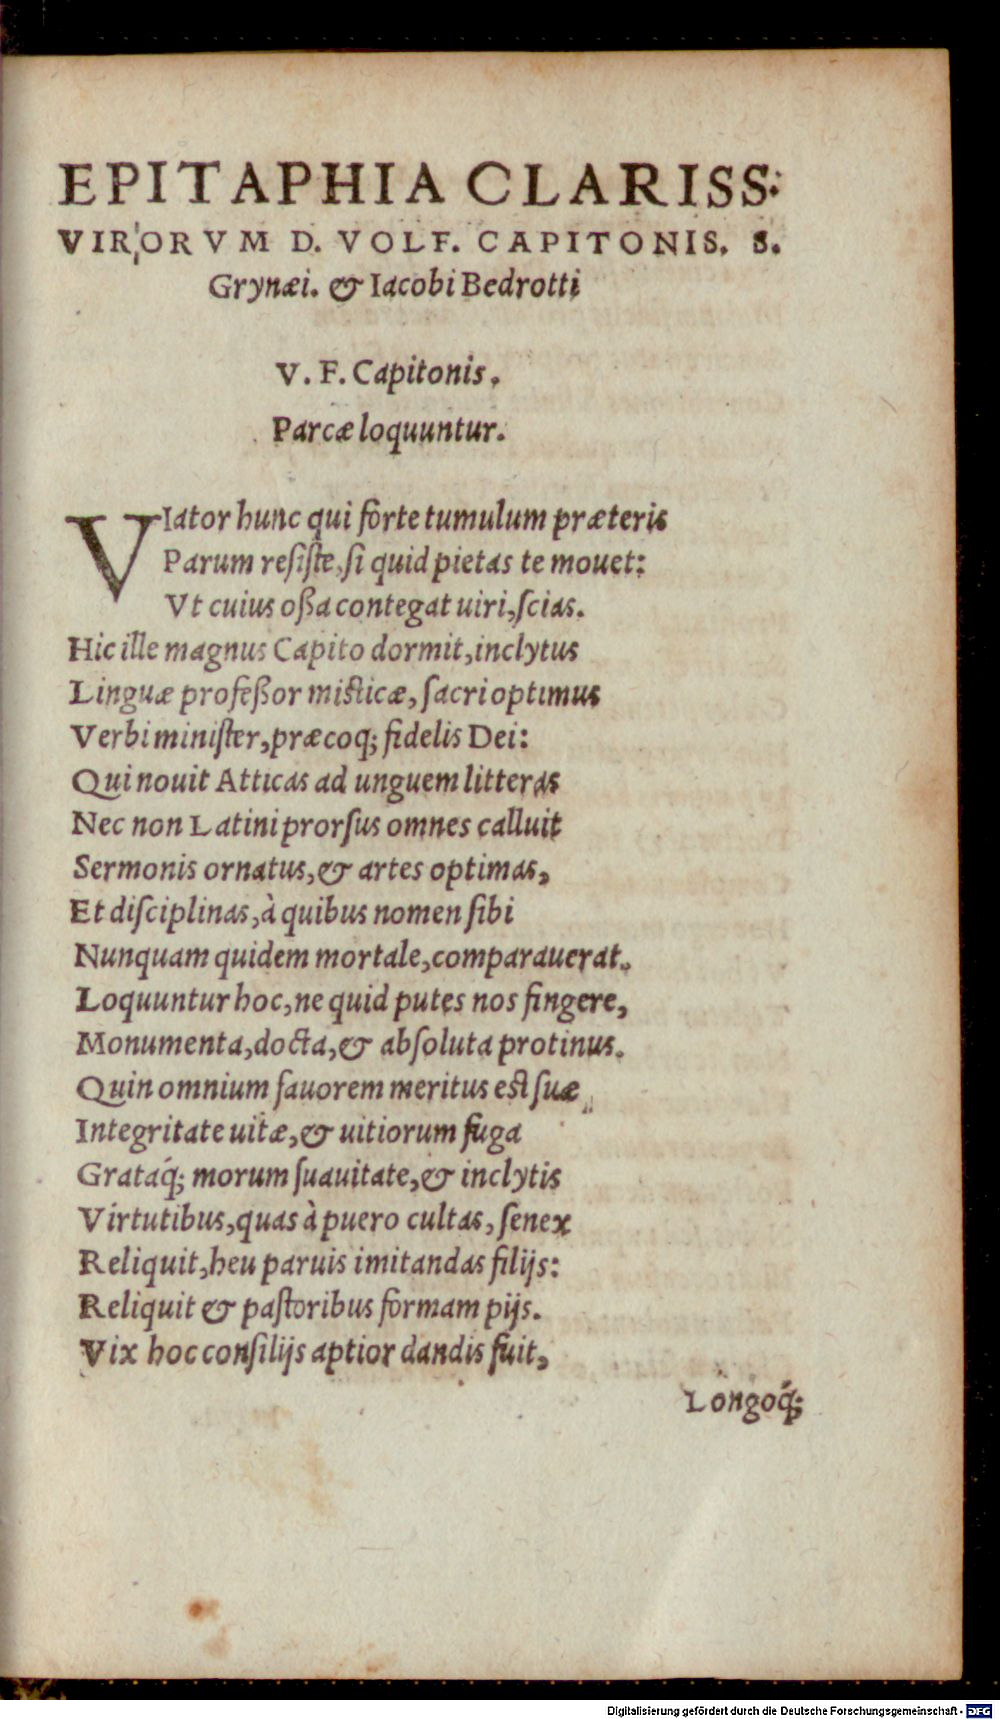 EPITAPHIA CLARISS:
VIRORVM D. VOLF. CAPITONIS. S.
Grynæi. & Iacobi Bedrotti
V. F. Capitonis.
Parcæ loquuntur.
VIator hunc qui forte tumulum præteris
Parum resiſte, ſi quid pietas te mouet:
Vt cuius oßa contegat uiri, ſcias.
Hic ille magnus Capito dormit, inclytus
Linguæ profeßor miſticæ, ſacri optimus
Verbi miniſter, præcoq; fidelis Dei:
Qui nouit Atticas ad unguem litteras
Nec non Latini prorſus omnes calluit
Sermonis ornatus, & artes optimas,
Et diſciplinas, à quibus nomen ſibi
Nunquam quidem mortale, comparauerat.
Loquuntur hoc, ne quid putes nos fingere,
Monumenta, docta, & abſoluta protinus.
Quin omnium fauorem meritus eſt ſuæ
Integritate uitæ, & uitiorum fuga
Grataq́; morum ſuauitate, & inclytis
Virtutibus, quas à puero cultas, ſenex
Reliquit, heu paruis imitandas filijs:
Reliquit & paſtoribus formam pijs.
Vix hoc conſilijs aptior dandis fuit,
Longoq́;
Digitalisierung gefördert durch die Deutsche Forschungsgemeinschaft - DFG